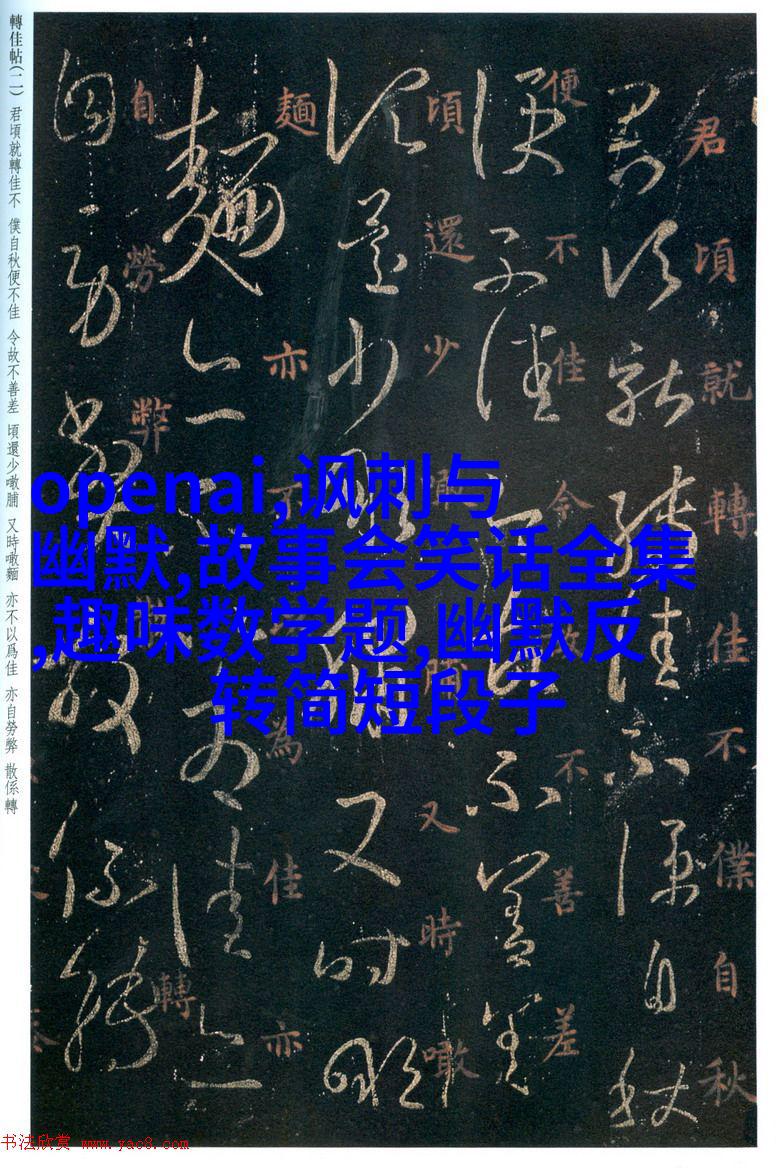 轉佳帖(二) 君頃就轉佳不 僕自秋便不佳 令故不善差 頃還少噉脯 又時噉麵 亦不以爲佳 亦自勞弊 散係轉
君頃就轉佳不僕自秋
便不佳令故不善差
頃還少噉脯又時噉
麵亦不以為佳亦
自勞弊散係轉
openai,讽刺与
幽默,故事会笑话全集
,趣味数学题,幽默反
转简短段子
书法欣赏 www.yac8.com